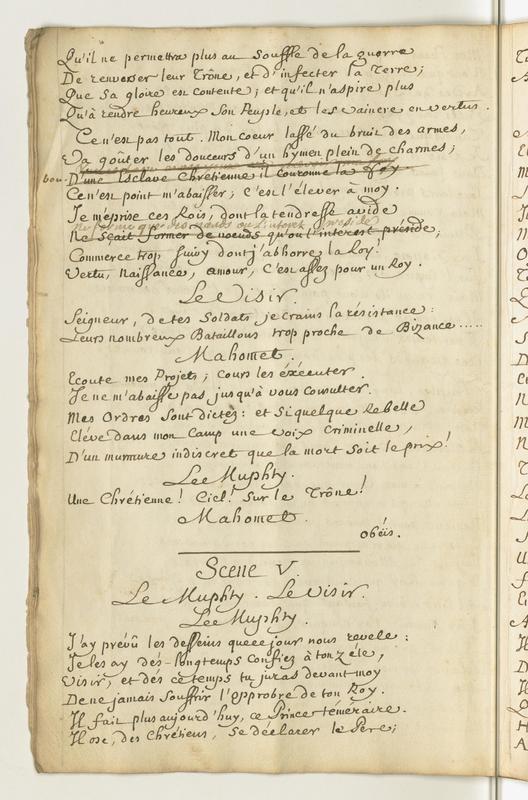 Qu'il ne permettra plus au Souffle de la guerre
De renverser leur Trône, et d'infecter la Terre;
Que Sa gloire en contente; et qu'il n'aspire plus
Qu'à rendre heureux Son Peuple, et les vaincre en vertus.
Ce n'est pas tout. Mon coeur lassé du bruit des armes,
Va goûter les douceurs d'un hymen plein de charmes;
bon. D'une Esclave Chrétienne il couronne la foy
Ce n'est point m'abaisser; c'est l'élever à moy.
Je méprise ces Rois, dont la tendresse avide
ne forme que des nœuds où l'interet préside
Ne Sçait former de nœuds qu'où l'interest préside;
Commerce trop suivy dont j'abhorre la loy!
Vertu, Naissance, amour, c'est assez pour un Roy.
Le Visir.
Seigneur, de tes Soldats je crains la résistance:
Leurs nombreux Bataillons trop proche de Bizance.....
Mahomet.
Ecoute mes Projets; cours les éxécuter.
Je ne m'abaisse pas jusqu'à vous consulter.
Mes Ordres Sont dictés: et Si quelque Rebelle
Elève dans mon Camp une voix Criminelle,
D'un murmure indiscret que la mort Soit le prix!
Le Muphty.
Une Chrétienne! Ciel! Sur le Trône!
Mahomet.
obéis.
Scene V.
Le Muphty. Le Visir.
Le Muphty.
J'ay prévû les desseins que ce jour nous revele:
Je les ay dés-longtemps confiez à ton zéle,
Visir, et dés ce temps tu juras devant moy
De ne jamais Souffrir l'opprobre de ton Roy.
Il fait plus aujourd'huy, ce Prince téméraire.
Il ose, des Chrétiens, Se déclarer le Pere;